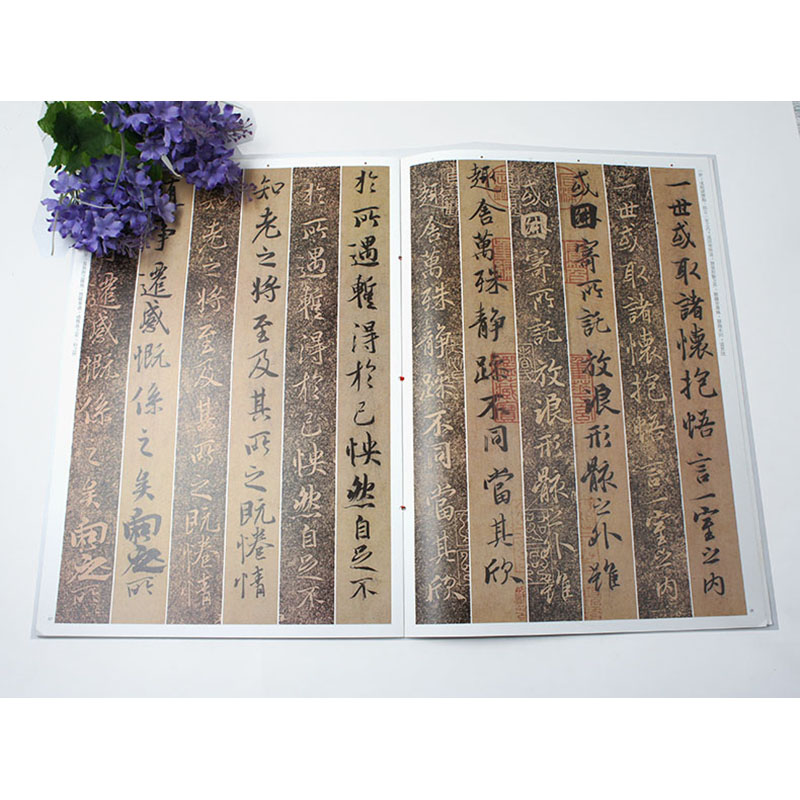 一世或取諸懷抱悟言一室之內
一世或取諸懷抱悟言一室之內
或因寄所託放浪形骸之外雖
或因寄所託放浪形骸之外雖
趣舍萬殊静躁不同當其欣
趣舍萬殊静躁不同當其欣
於所遇暫得於己怏然自足不
於所遇暫得於己怏然自足不
知老之將至及其所之既惓情
老之將至及其所之既惓情
事遷感慨係之矣向之所
遷感慨係之矣向之所